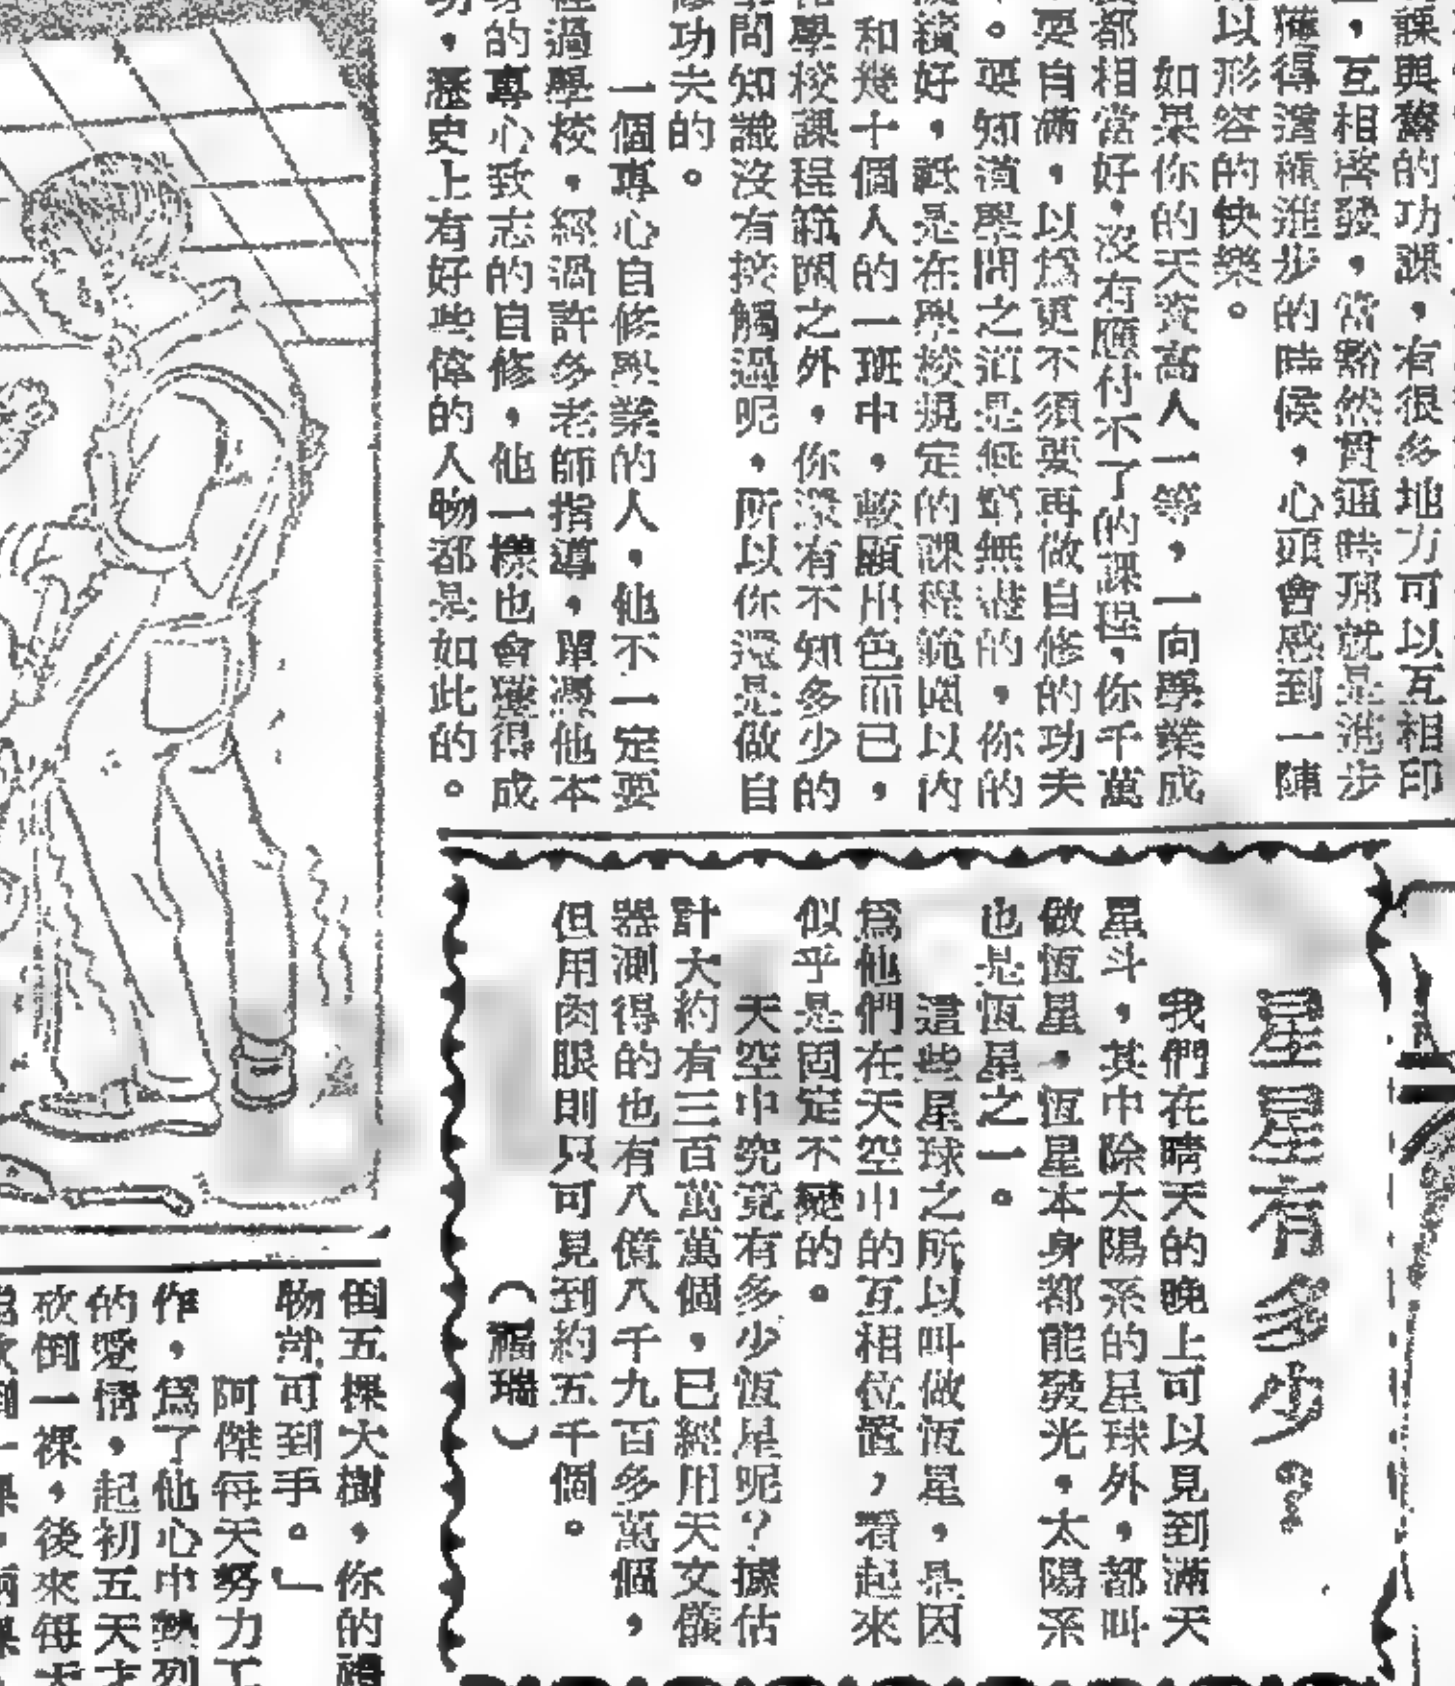 課與黌的功課，有很多地方可以互相印
，互相啓發，當豁然貫通時那就是進步
獲得這種進步的時候，心頭會感到一陣
以形容的快樂。
如果你的天資高人一等，一向學業成
都相當好，沒有應付不了的課程，你千萬
要自滿，以爲更不須要再做自修的功夫
。要知道學問之道是無窮無盡的，你的
績好，祗是在學校規定的課程範圍以內
和幾十個人的一班中，較顯出色而已，
學校課程範圍之外，你還有不知多少的
問知識沒有接觸過呢，所以你還是做自
功夫的。
一個專心自修學業的人，他不一定要
過學校，經過許多老師指導，單憑他本
的專心致志的自修，他一樣也會獲得成
，歷史上有好些偉的人物都是如此的。
星星有多少？
我們在晴天的晚上可以見到滿天
星斗，其中除太陽系的星球外，都叫
做恆星，恆星本身都能發光，太陽系
也是恆星之一。
這些星球之所以叫做恆星，是因
爲他們在天空中的互相位置，看起來
似乎是固定不變的。
天空中究竟有多少恆星呢？據估
計大約有三百萬萬個，已經用天文儀
器測得的也有八億八千九百多萬個，
但用肉眼則只可見到約五千個。
（福瑞）
倒五棵大樹，你的禮
物就可到手。」
阿傑每天努力工
作，爲了他心中熱烈
的愛情，起初五天才
砍倒一棵，後來每天